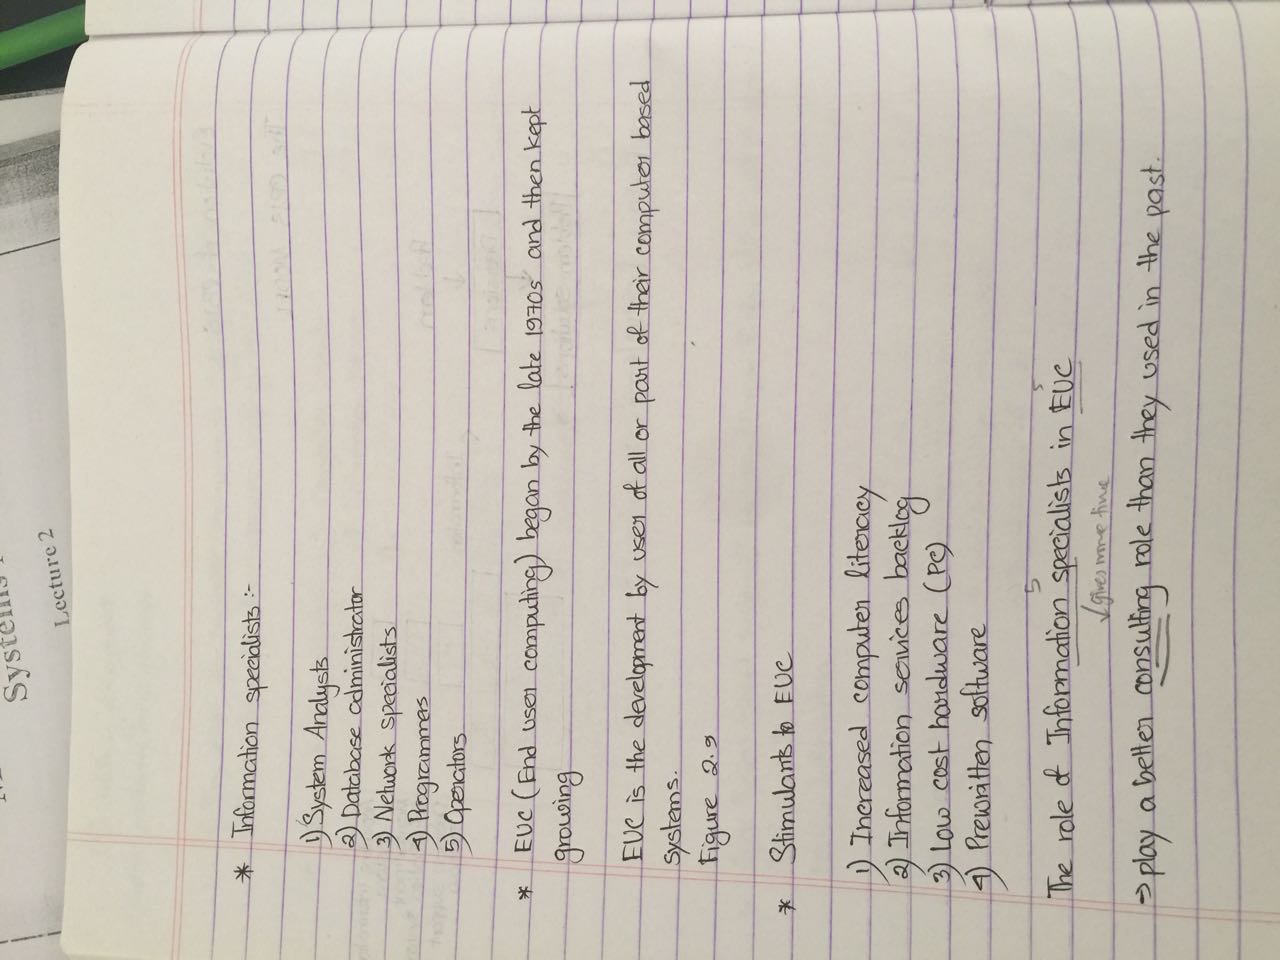 Lecture 2
* Information specialists :-
1) System Analysts
2) Database administrator
3) Network specialists
4) Programmers
5) Operators
* EUC (End user computing) began by the late 1970s and then kept
growing
EUC is the development by user of all or part of their computer based
systems.
Figure 2.9
* Stimulants to EUC
1) Increased computer literacy
2) Information services backlog
3) Low cost hardware (PC)
4) Prewritten software
The role of Information specialists in EUC
gives more time
→ play a better consulting role than they used in the past.